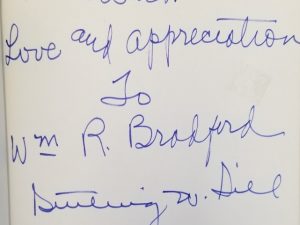 Love and appreciation
To
Wm R. Bradford
W. Sill